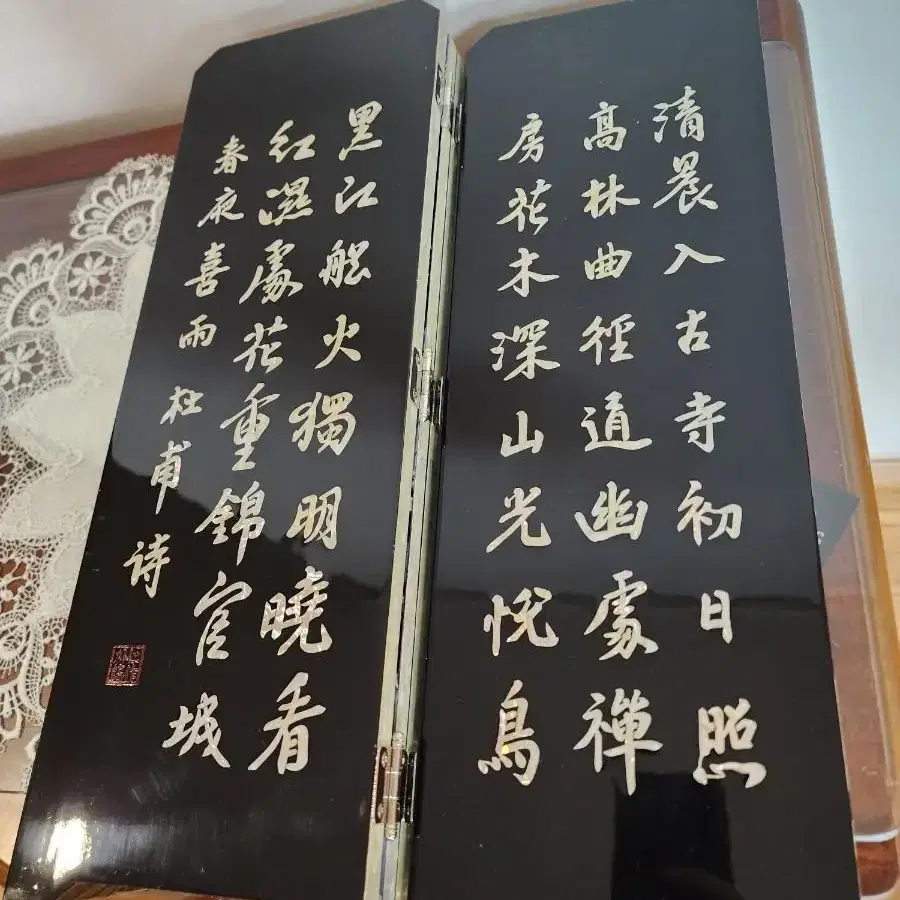 清晨入古寺初日照
高林曲徑通幽處禪
房花木深山光悅鳥
黑江船火獨明曉看
紅濕處花重錦官城
春夜喜雨 杜甫诗